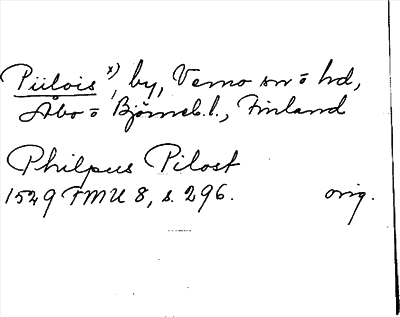 Piilois x), by, Vemo sn o hd,
Åbo o Björneb. l., Finland
Philpus Pilost
1549 FMU 8, s. 296. orig.